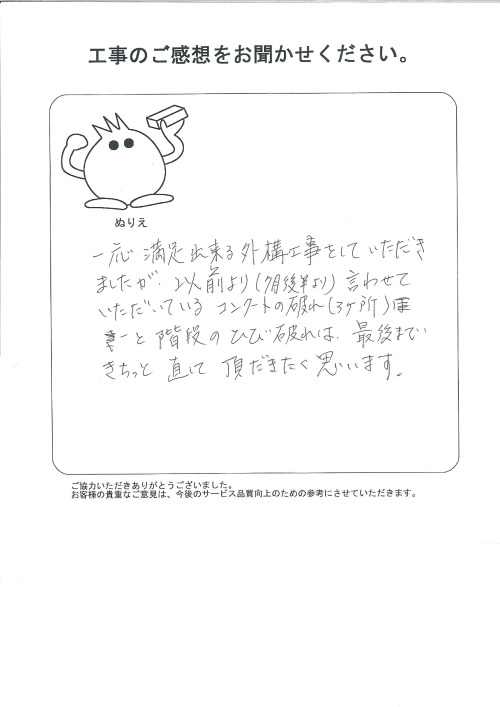 工事のご感想をお聞かせください。
ぬりえ
一応 満足出来る外構工事をしていただき
ましたが、以前より(7月後半より) 言わせて
いただいている コンクートの破れ(3ヶ所)
と 階段の ひび破れは、最後まで
きちっと 直して 頂だきたく 思います。
ご協力いただきありがとうございました。
お客様の貴重なご意見は、今後のサービス品質向上のための参考にさせていただきます。